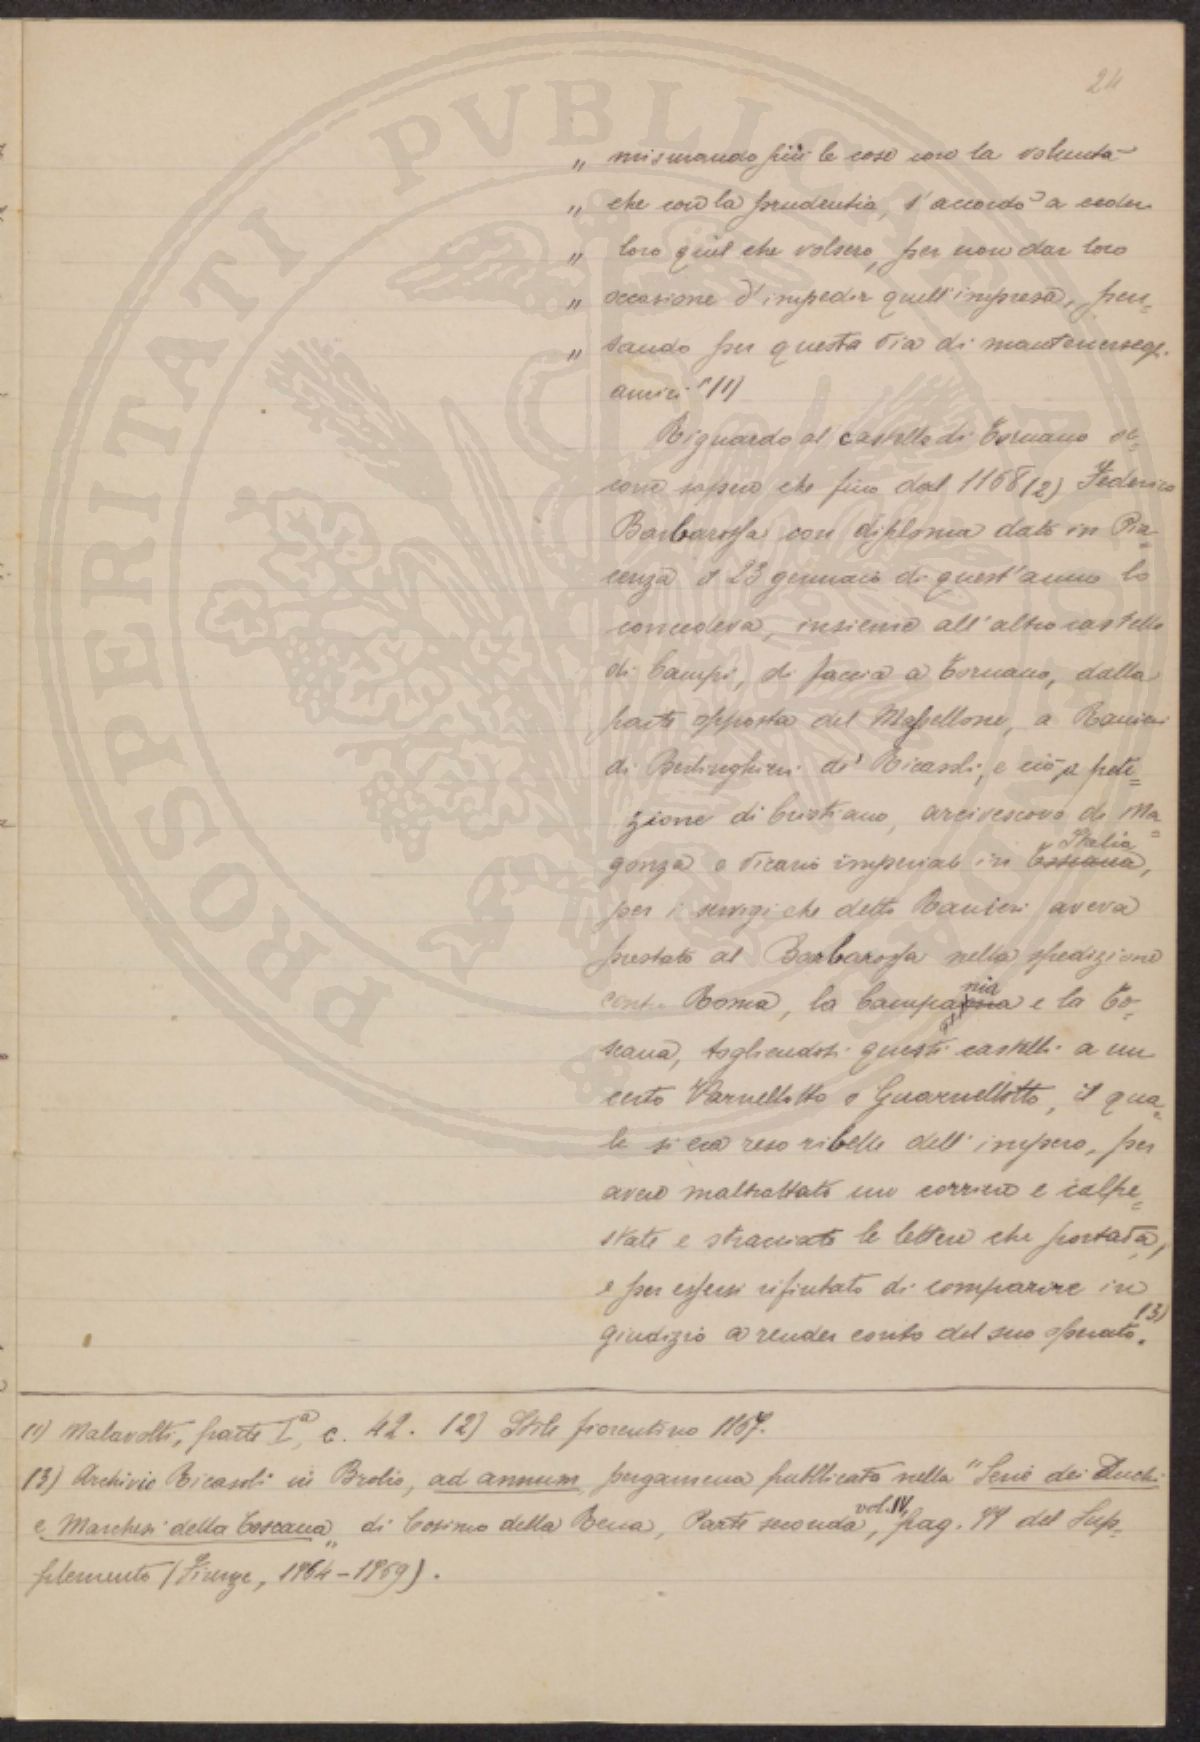 24
„ misurando più le cose con la voluntà
„ che con la prudentia, s'accordò a ceder
„ loro quel che volsero, per non dar loro
„ occasione d'impedir quell'impresa, pen=
„ sando per questa via di mantenersegli
amici" (1)
Riguardo al castello di Tornano oc=
corre sapere che fino dal 1168 (2) Federico
Barbarossa con diploma dato in Pia=
cenza il 23 gennaio di quest'anno lo
concedeva, insieme all'altro castello
di Campi, di faccia a Tornano, dalla
parte opposta del Massellone, a Ranieri
di Berlinghieri de' Ricasoli, e ciò a peti=
zione di Cristiano, arcivescovo di Ma=
gonza e vicario imperiale in Toscana Italia,
per i servigi che detto Ranieri aveva
prestato al Barbarossa nella spedizione
contro Roma, la Campania e la To=
scana, togliendosi questi castelli a un
certo Varnellotto o Guarnellotto, il qua=
le si era reso ribelle dell'impero, per
avere maltrattato un corriere e calpe=
state e stracciate le lettere che portava,
e per essersi rifiutato di comparire in
giudizio a render conto del suo operato. (3)
(1) Malavolti, parte Iª, c. 42. (2) Stile fiorentino 1167.
(3) Archivio Ricasoli in Brolio, ad annum, pergamena pubblicata nella "Serie dei Duchi
e Marchesi della Toscana„ di Cosimo della Rena, Parte seconda, vol. IV, pag. 99 del Sup=
plemento (Firenze, 1764-1769).
PROSPERITATI PVBLICAE